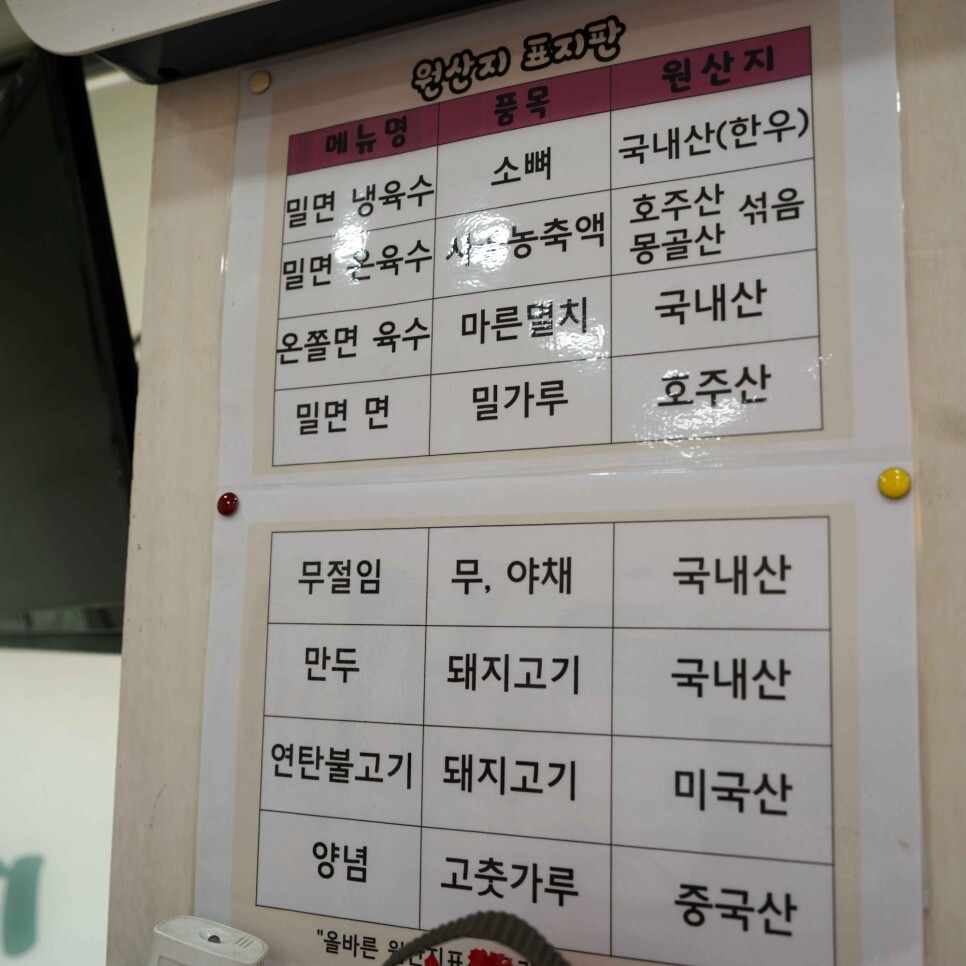 원산지 표지판
메뉴명 품목 원산지
밀면 냉육수 소뼈 국내산(한우)
밀면 온육수 농축액 호주산 몽골산 섞음
온쫄면 육수 마른멸치 국내산
밀면 면 밀가루 호주산
무절임 무, 야채 국내산
만두 돼지고기 국내산
연탄불고기 돼지고기 미국산
양념 고춧가루 중국산
"올바른